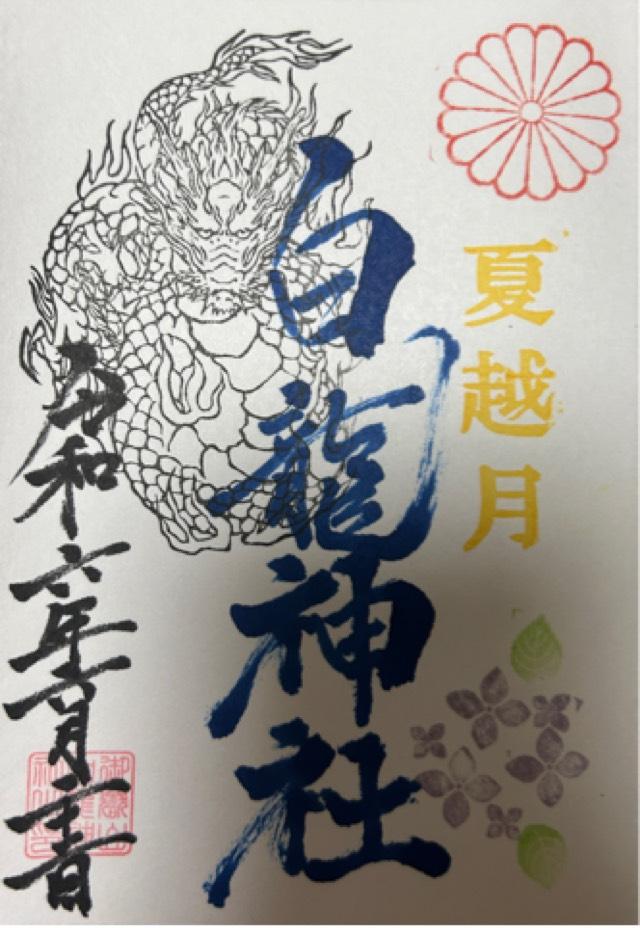 夏越月
白龍神社
令和六年六月
御嶽山